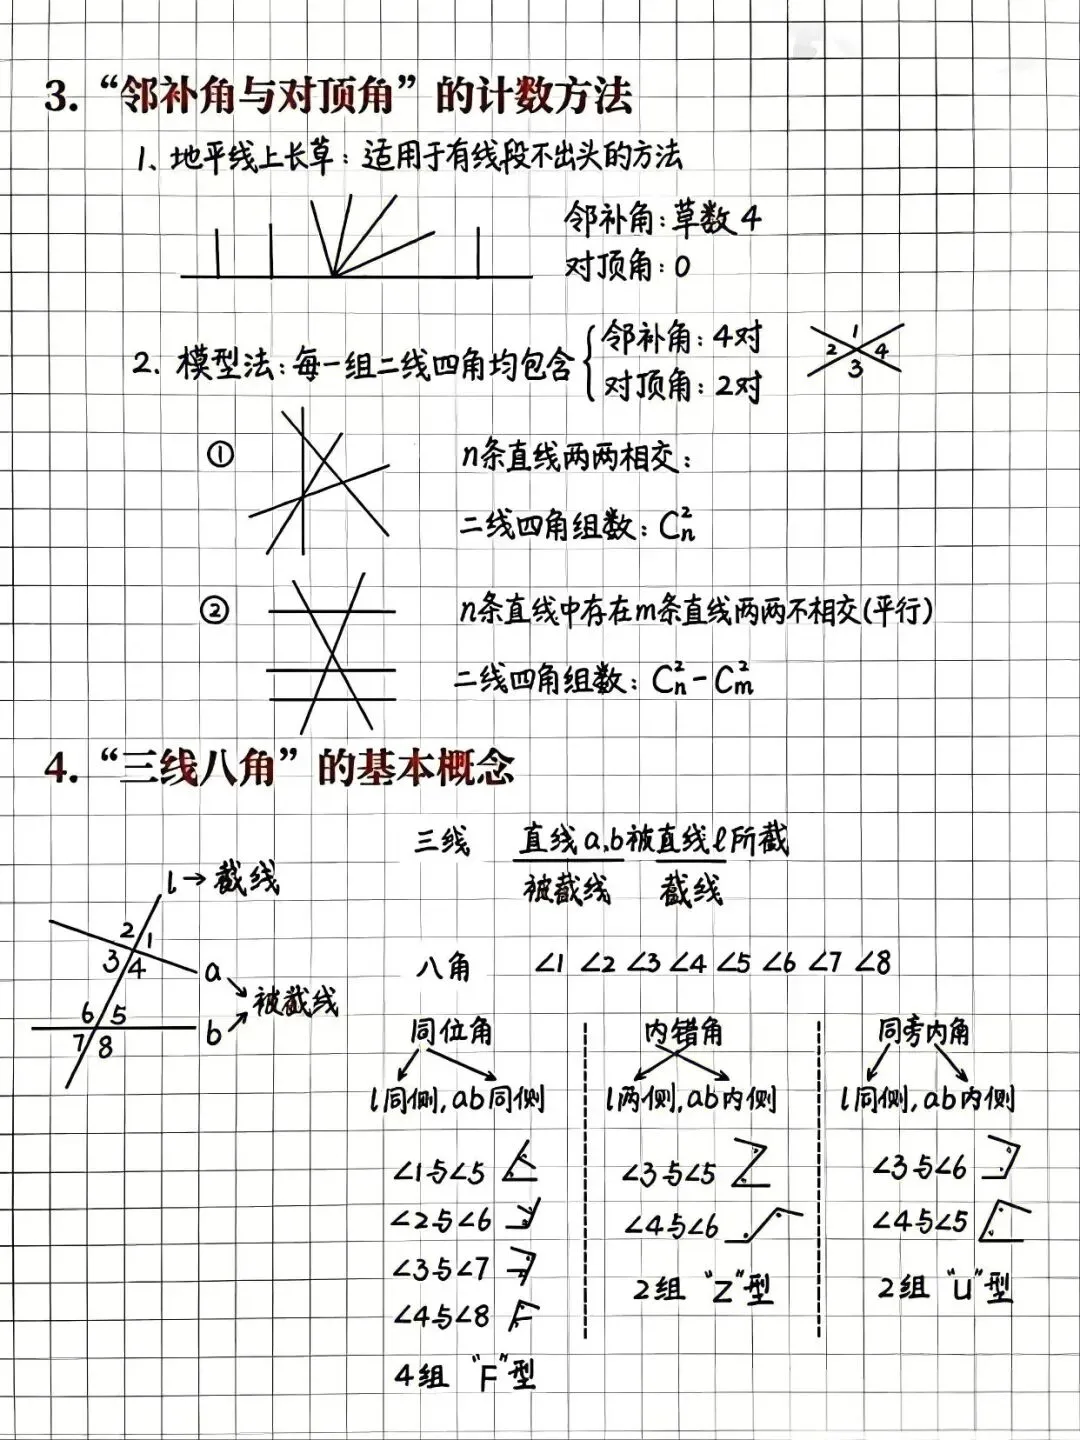 3. “邻补角与对顶角”的计数方法
1、地平线上长草：适用于有线段不出头的方法
邻补角：草数 4
对顶角：0
2. 模型法：每一组二线四角均包含
邻补角：4对
对顶角：2对
1
2 4
3
① n条直线两两相交：
二线四角组数：C²ₙ
② n条直线中存在m条直线两两不相交(平行)
二线四角组数：C²ₙ-C²ₘ
4. “三线八角”的基本概念
三线 直线a,b被直线l所截
被截线 截线
l→截线
2 1
3 4
a
被截线
6 5
b
7 8
八角 ∠1 ∠2 ∠3 ∠4 ∠5 ∠6 ∠7 ∠8
同位角
l同侧,ab同侧
∠1与∠5
∠2与∠6
∠3与∠7
∠4与∠8
4组 “F”型
内错角
l两侧,ab内侧
∠3与∠5
∠4与∠6
2组 “Z”型
同旁内角
l同侧,ab内侧
∠3与∠6
∠4与∠5
2组 “U”型